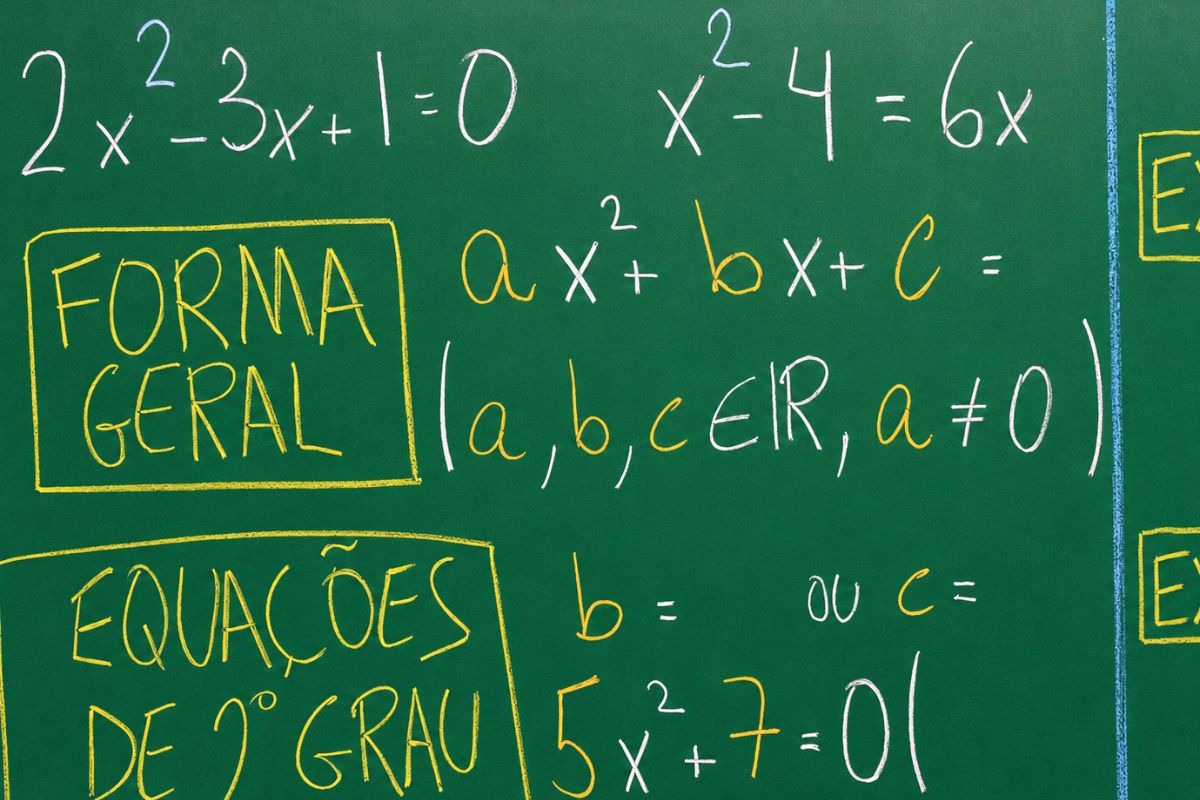 2x² - 3x + 1 = 0
x² - 4 = 6x
FORMA
GERAL
ax² + bx + c =
(a, b, c ∈ ℝ, a ≠ 0)
EQUAÇÕES
DE 2º GRAU
b = ou c =
5x² + 7 = 0 (